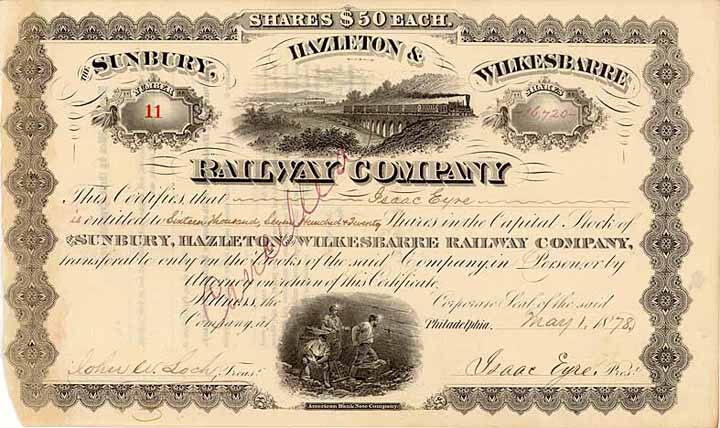 SHARES $50 EACH.
THE SUNBURY, HAZLETON & WILKESBARRE
NUMBER
11
SHARES
16,720
RAILWAY COMPANY
This Certifies, that Isaac Eyre
is entitled to Sixteen Thousand, Seven Hundred & Twenty Shares in the Capital Stock of
THE SUNBURY, HAZLETON AND WILKESBARRE RAILWAY COMPANY,
transferable only on the Books of the said Company, in Person, or by
Attorney on return of this Certificate.
Witness, the Corporate Seal of the said
Company, at Philadelphia. May 1, 1878
Cancelled
John W. Loch, Treas. Isaac Eyre, Pres.
American Bank Note Company.